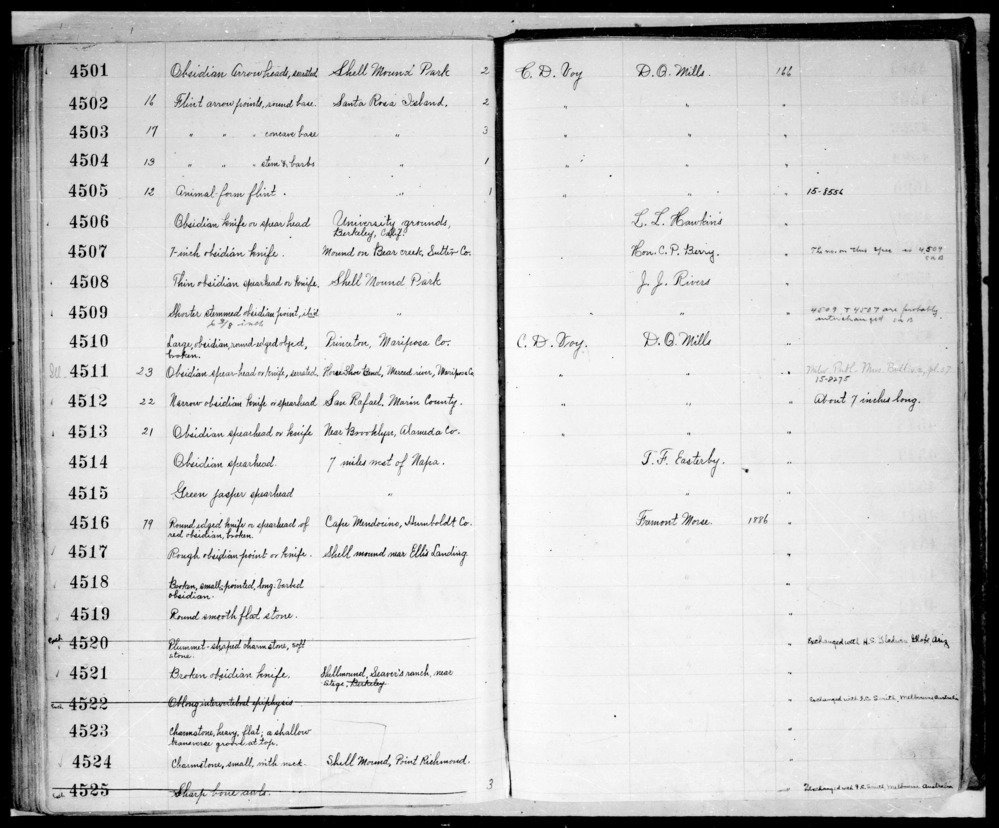 4501 Obsidian Arrowheads, serrated Shell Mound Park 2 C. D. Voy D. O. Mills. 166
4502 16 Flint arrow points, round base Santa Rosa Island. 2 " " "
4503 17 " " " concave base " 3 " " "
4504 13 " " " stem & barbs " 1 " " "
4505 12 Animal-form flint. " 1 " " " 15-8556
4506 Obsidian knife or spear head University grounds, L. L. Hawkins "
Berkeley, Calif.
4507 7-inch obsidian knife. Mound on Bear creek, Sutter Co. Hon. C. P. Berry. " The no. on this spec. is 4509
4508 Thin obsidian spearhead or knife, Shell Mound Park J. J. Rivers "
4509 Shorter stemmed obsidian point, ibid " " " 4509 & 4507 are probably
interchanged
4510 Large, obsidian, round-edged object, Princeton, Mariposa Co. C. D. Voy. D. O. Mills "
broken.
4511 23 Obsidian spear-head or knife, serrated Horse Shoe Bend, Merced river, Mariposa Co " " "
15-8275
4512 22 Narrow obsidian knife or spearhead San Rafael, Marin County. " " " About 7 inches long.
4513 21 Obsidian spearhead or knife Near Brooklyn, Alameda Co. " " "
4514 Obsidian spearhead 7 miles west of Napa. T. F. Easterby. "
4515 Green jasper spearhead " " "
4516 79 Round edged knife or spearhead of Cape Mendocino, Humboldt Co. Fremont Morse. 1886 "
red obsidian, broken
4517 Rough obsidian point or knife. Shell mound near Ellis Landing "
4518 Broken, small, pointed, long-barbed "
obsidian.
4519 Round smooth flat stone. "
Exch 4520 Plummet-shaped charmstone, soft " Exchanged with H.S. Gladwin Globe Ariz
stone.
4521 Broken obsidian knife. Shellmound, Seaver's ranch, near "
Stege, Berkeley
Exch 4522 Oblong intervertebral epiphysis " Exchanged with Smith, Melbourne Australia
4523 Charmstone, heavy, flat; a shallow "
transverse groove at top.
4524 Charmstone, small, with neck. Shell Mound, Point Richmond. "
Exch 4525 Sharp bone awls. 3 " Exchanged with Smith, Melbourne Australia